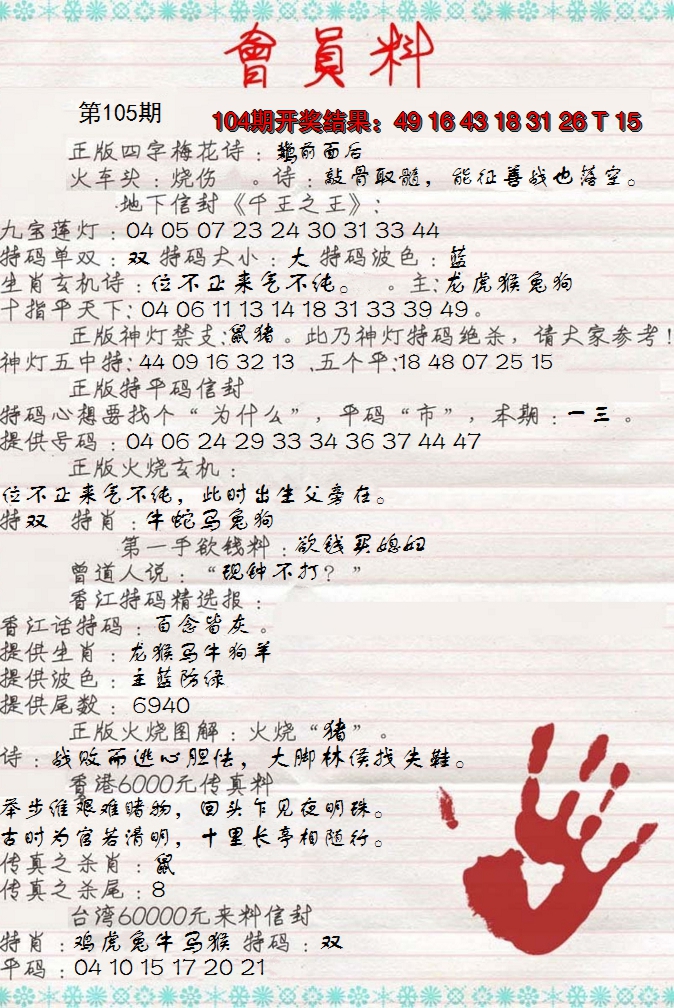 會員料
第105期
104期开奖结果：49 16 43 18 31 26 T 15
正版四字梅花诗：鹅前面后
火车头：烧伤 。诗：敲骨取髓，能征善战也落空。
地下信封《千王之王》：
九宝莲灯：04 05 07 23 24 30 31 33 44
特码单双：双 特码大小：大 特码波色：蓝
生肖玄机诗：位不正来气不纯。 。主：龙虎猴兔狗
十指平天下：04 06 11 13 14 18 31 33 39 49。
正版神灯禁支：鼠猪。此乃神灯特码绝杀，请大家参考！
神灯五中特：44 09 16 32 13 .五个平：18 48 07 25 15
正版特平码信封
特码心想要找个“为什么”，平码“市”，本期：一三。
提供号码：04 06 24 29 33 34 36 37 44 47
正版火烧玄机：
位不正来气不纯，此时出生父旁在。
特双 特肖：牛蛇马兔狗
第一手欲钱料：欲钱买媳妇
曾道人说：“现钟不打？”
香江特码精选报：
香江话特码：百念皆灰。
提供生肖：龙猴马牛狗羊
提供波色：主蓝防绿
提供尾数：6940
正版火烧图解：火烧“猪”。
诗：战败而逃心胆怯，大脚林侯找失鞋。
香港6000元传真料
举步维艰难赌物，回头乍见夜明珠。
古时为官若清明，十里长亭相随行。
传真之杀肖：鼠
传真之杀尾：8
台湾60000元来料信封
特肖：鸡虎兔牛马猴 特码：双
平码：04 10 15 17 20 21